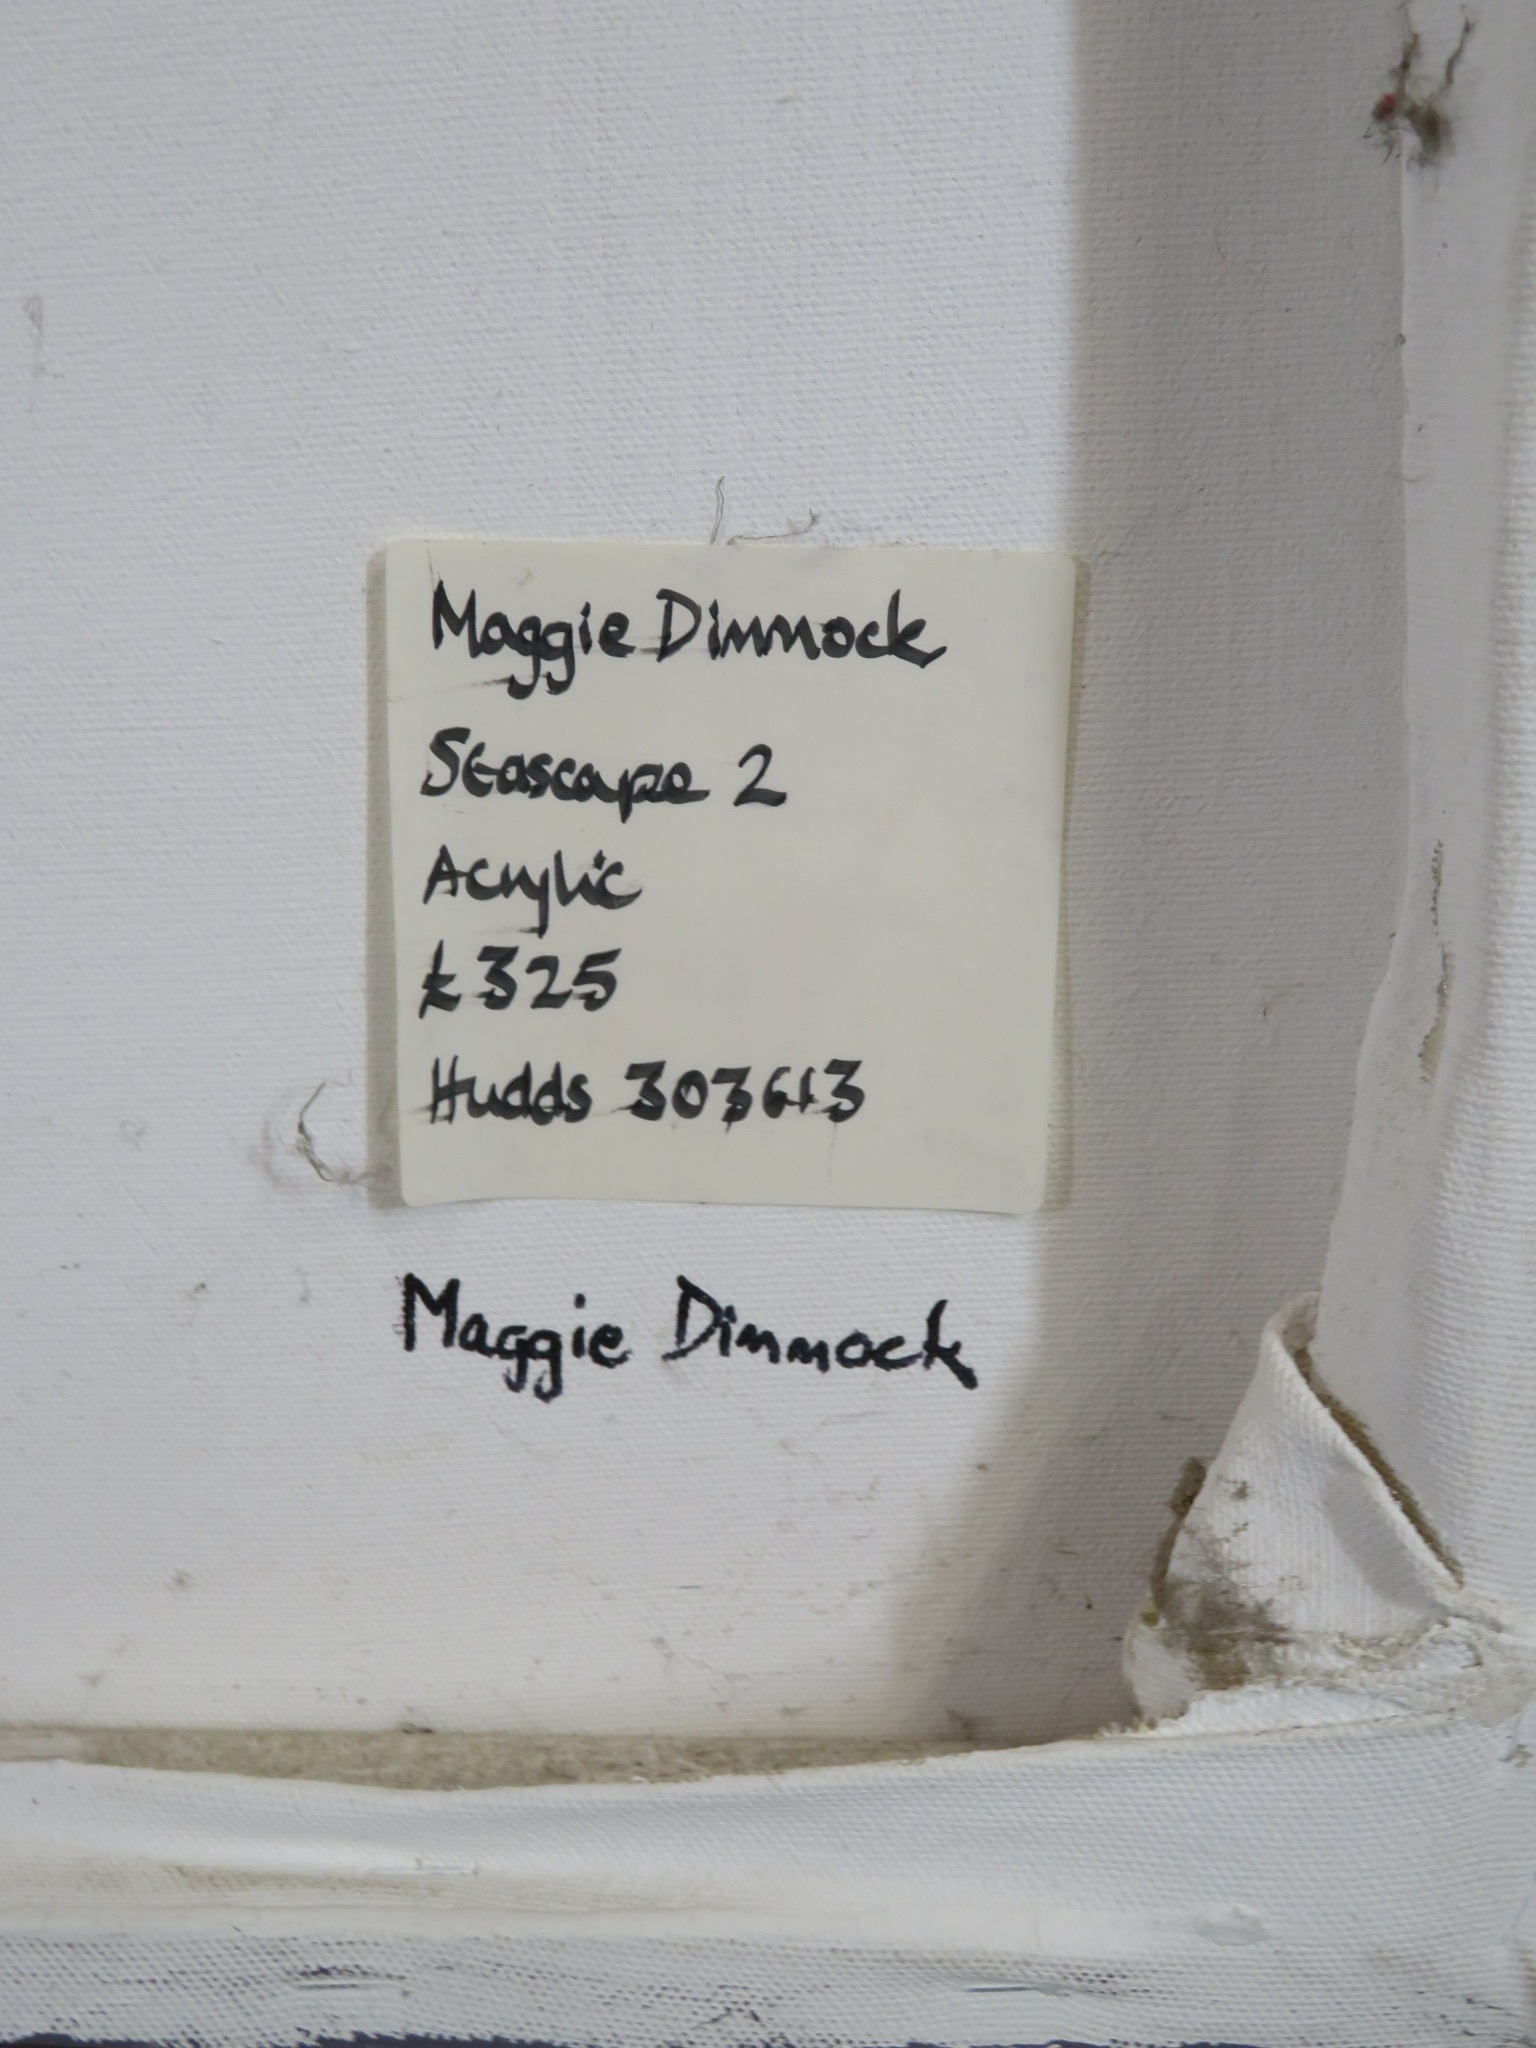 Maggie Dimmock
Seascape 2
Acrylic
£325
Hudds 303613
Maggie Dimmock